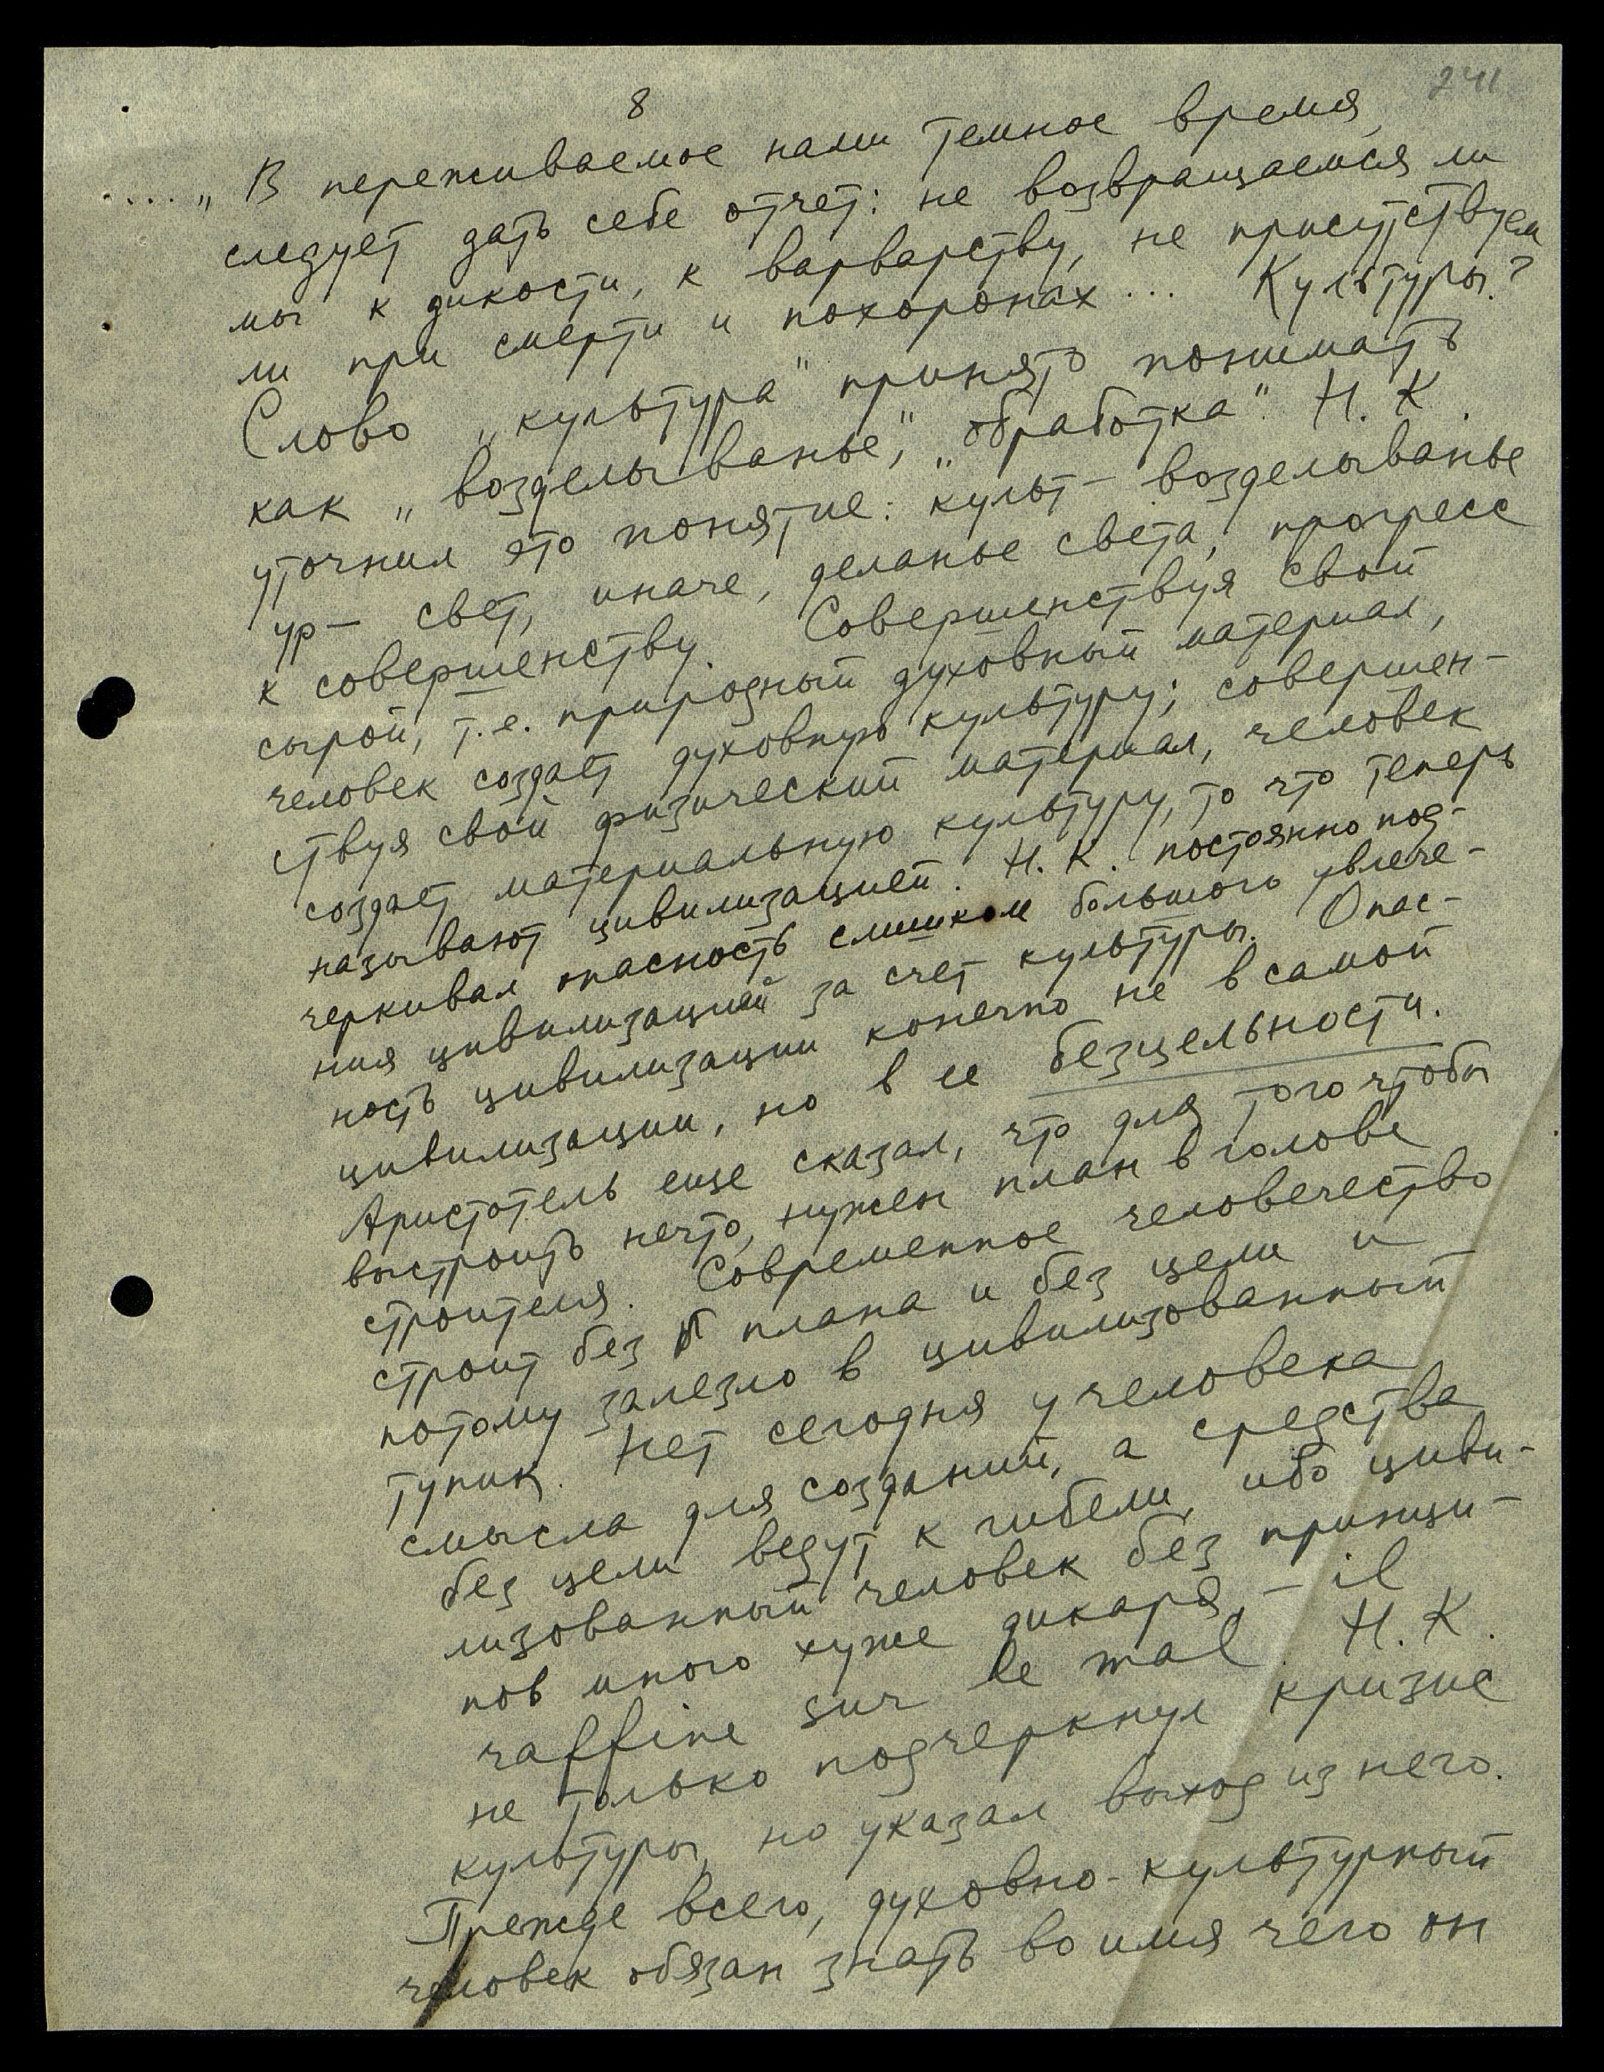 241
8
.... „В переживаемое нами темное время,
следует дать себе отчет: не возвращаемся ли
мы к дикости, к варварству, не присутствуем
ли при смерти и похоронах... Культуры?
Слово „культура" принято понимать
как „возделыванье", „обработка". Н. К.
уточнил это понятие: культ - возделыванье
ур - свет, иначе, деланье света, прогресс
к совершенству. Совершенствуя свой
сырой, т.е. природный духовный материал,
человек создает духовную культуру; совершен-
ствуя свой физический материал, человек
создает материальную культуру, то что теперь
называют цивилизацией. Н. К. постоянно под-
черкивал опасность слишком большого увлече-
ния цивилизацией за счет культуры. Опас-
ность цивилизации конечно не в самой
цивилизации, но в ее безцельности.
Аристотель еще сказал, что для того чтобы
выстроить нечто, нужен план в голове
строителя. Современное человечество
строит без плана и без цели и
потому залезло в цивилизованный
тупик. Нет сегодня у человека
смысла для созданий, а средства
без цели ведут к гибели, ибо циви-
лизованный человек без принци-
пов много хуже дикаря, - il
raffine sur le mal. Н. К.
не только подчеркнул кризис
культуры, но указал выход из него.
Прежде всего, духовно-культурный
человек обязан знать во имя чего он